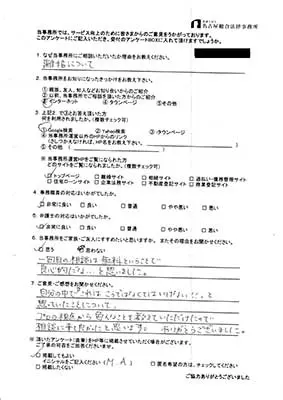 名古屋総合法律事務所
当事務所では、サービス向上のために皆さまからのご意見をうかがっております。
このアンケートにご記入いただき、受付のアンケートBOXに入れて頂けますでしょうか。
1. なぜ当事務所にご相談いただいたか理由をお教えください。
離婚について
2. 当事務所をお知りになったきっかけをお教え下さい。
①親族、友人、知人などお知り合いからのご紹介
②以前、当事務所でご相談を頂いた方からのご紹介
③インターネット ④タウンページ ⑤その他
3. 上記2.で③と答え頂いた方
何を利用されましたか。(複数チェック可)
①Google検索 ②Yahoo検索 ③タウンページ
④当事務所運営以外のHPからのリンク
(さしつかえなければ、HP名をお教え下さい。)
⑤その他( )
※ 当事務所運営HPをご覧になられた方
どのサイトをご覧になられましたか。(複数チェック可)
□トップページ □離婚サイト □相続サイト □過払い・債務整理サイト
□住宅ローンサイト □企業法務サイト □不動産登記サイト □商業登記サイト
4. 事務職員の対応はいかがでしたか。
□非常に良い □良い □普通 □やや悪い □悪い
5. 弁護士の対応はいかがでしたか。
□非常に良い □良い □普通 □やや悪い □悪い
6. 当事務所をご家族・ご友人にすすめたいと思いますか。またその理由をお聞かせください。
□思う □思わない
一回目の相談は無料ということで
良心的だな…と思いました。
7. ご意見・ご感想をお聞かせください。
自分の中で"これは こうでなくてはいけない"と
思っていたことについて、
プロの視点から色んなことを教えていただけたので
相談に来て良かったと思います。ありがとうございました。
※ 頂いたアンケート(直筆)をHPに掲載させていただく場合がございます。
ご了承の可否をご回答くださいませ。
□掲載してもよい
イニシャルをご記入ください(M.A) □匿名希望の方は、チェックしてください
□掲載したくない
ご協力ありがとうございました